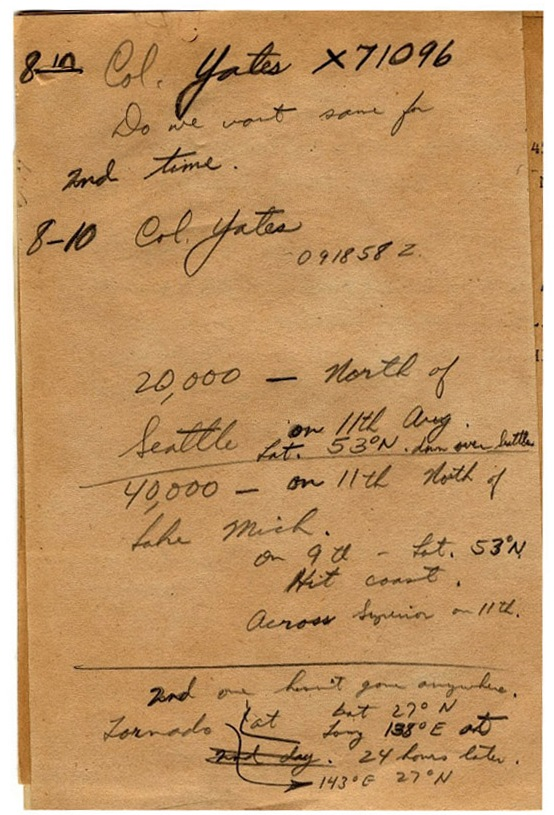 8-10 Col. Yates X71096
Do we want same for
2nd time.
8-10 Col. Yates
091858 Z.
20,000 — North of
Seattle on 11th Aug.
Lat. 53°N. down over Seattle
40,000 — on 11th North of
Lake Mich.
on 9th - Lat. 53°N
Hit coast.
Across Superior on 11th.
2nd one hasn't gone anywhere.
Tornado at Lat 27°N
Long 138°E at
2nd day. 24 hours later.
143°E 27°N